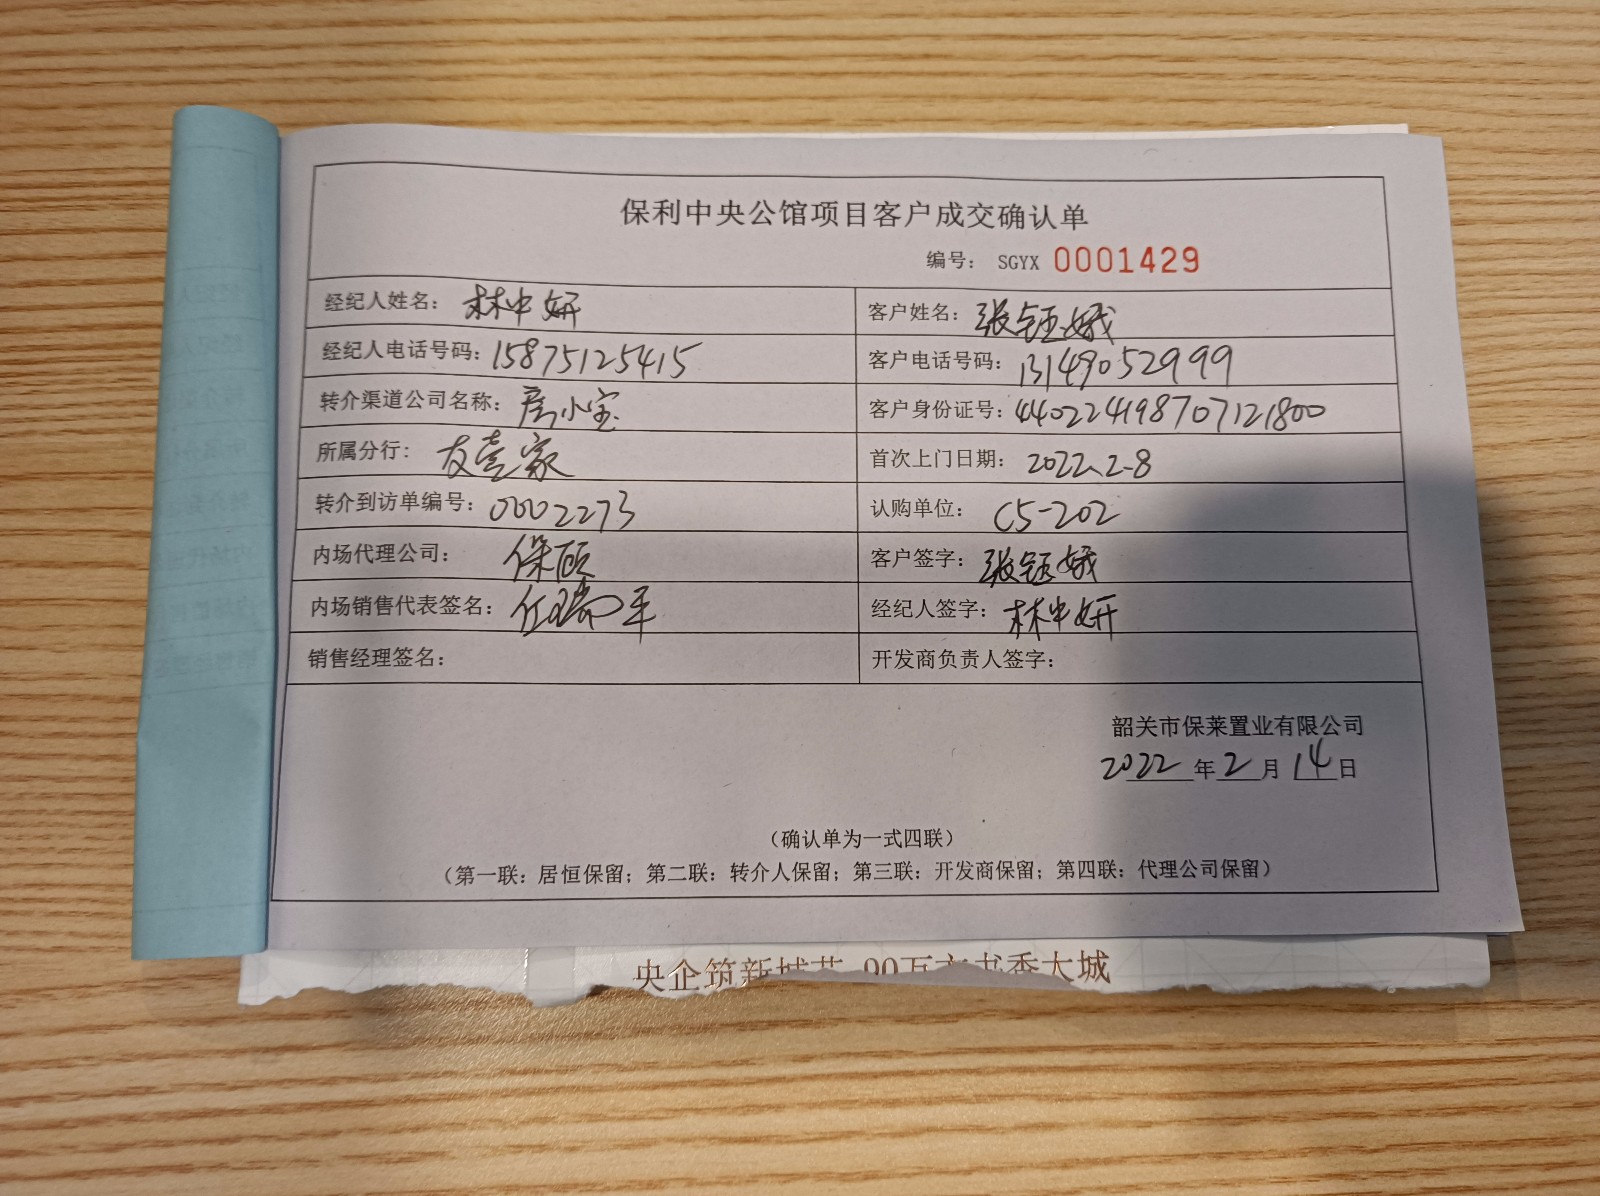 保利中央公馆项目客户成交确认单
编号: SGYX 0001429
经纪人姓名: 林中妍
客户姓名: 张钰娥
经纪人电话号码: 15875125415
客户电话号码: 13149052999
转介渠道公司名称: 房小宝
客户身份证号: 440224198707121800
所属分行: 友壹家
首次上门日期: 2022.2.8
转介到访单编号: 0002273
认购单位: C5-202
内场代理公司: 保顾
客户签字: 张钰娥
内场销售代表签名: 任瑞平
经纪人签字: 林中妍
销售经理签名:
开发商负责人签字:
韶关市保莱置业有限公司
2022年2月14日
(确认单为一式四联)
(第一联: 居恒保留; 第二联: 转介人保留; 第三联: 开发商保留; 第四联: 代理公司保留)
央企筑新城 90万 书香大城